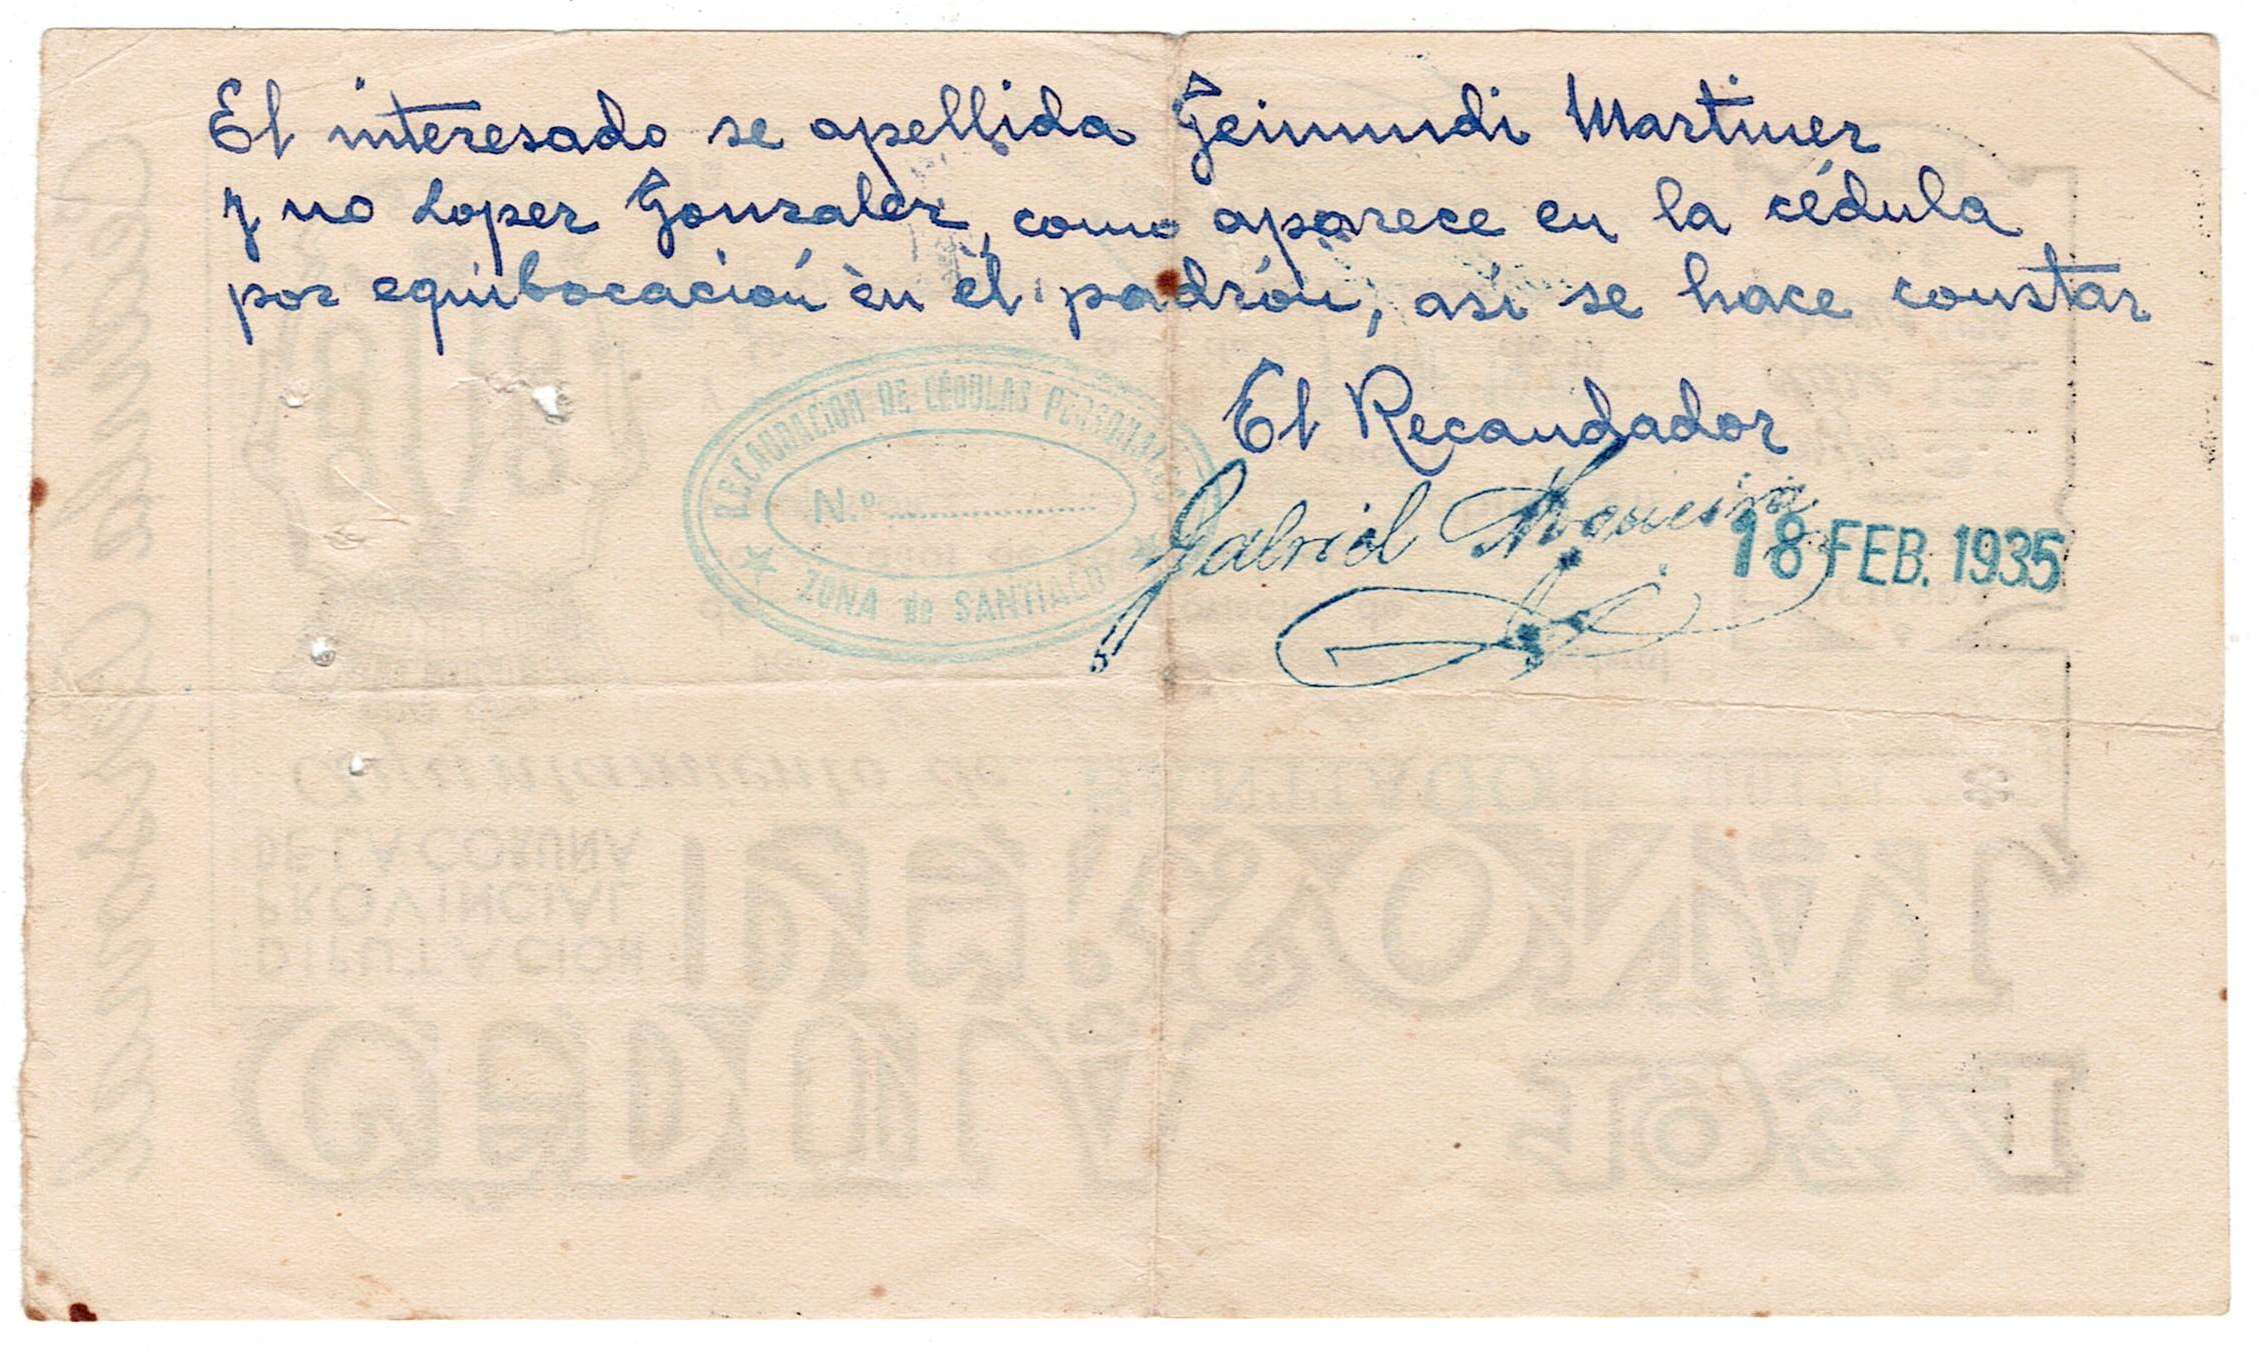 El interesado se apellida Geimundi Martinez
y no Lopez Gonzalez, como aparece en la cédula
por equibocación en el padrón, así se hace constar
El Recaudador
RECAUDACION DE CÉDULAS PERSONALES
N.º
ZONA de SANTIAGO
Gabriel
18 FEB. 1935
Ayuntamiento de
DE LA CORUÑA
PROVINCIAL
DIPUTACION